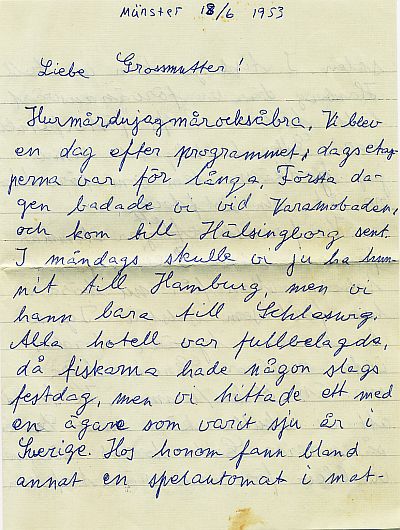 Münster 18/6 1953
Liebe Grossmutter!
Hurmårdujagmårocksåbra. Vi blev
en dag efter programmet, dagsetap-
perna var för långa. Första da-
gen badade vi vid Varamobaden,
och kom till Hälsingborg sent.
I måndags skulle vi ju ha hun-
nit till Hamburg, men vi
hann bara till Schleswig.
Alla hotell var fullbelagda,
då fiskarna hade någon slags
festdag, men vi hittade ett med
en ägare som varit sju år i
Sverige. Hos honom fann bland
annat en spelautomat i mat-